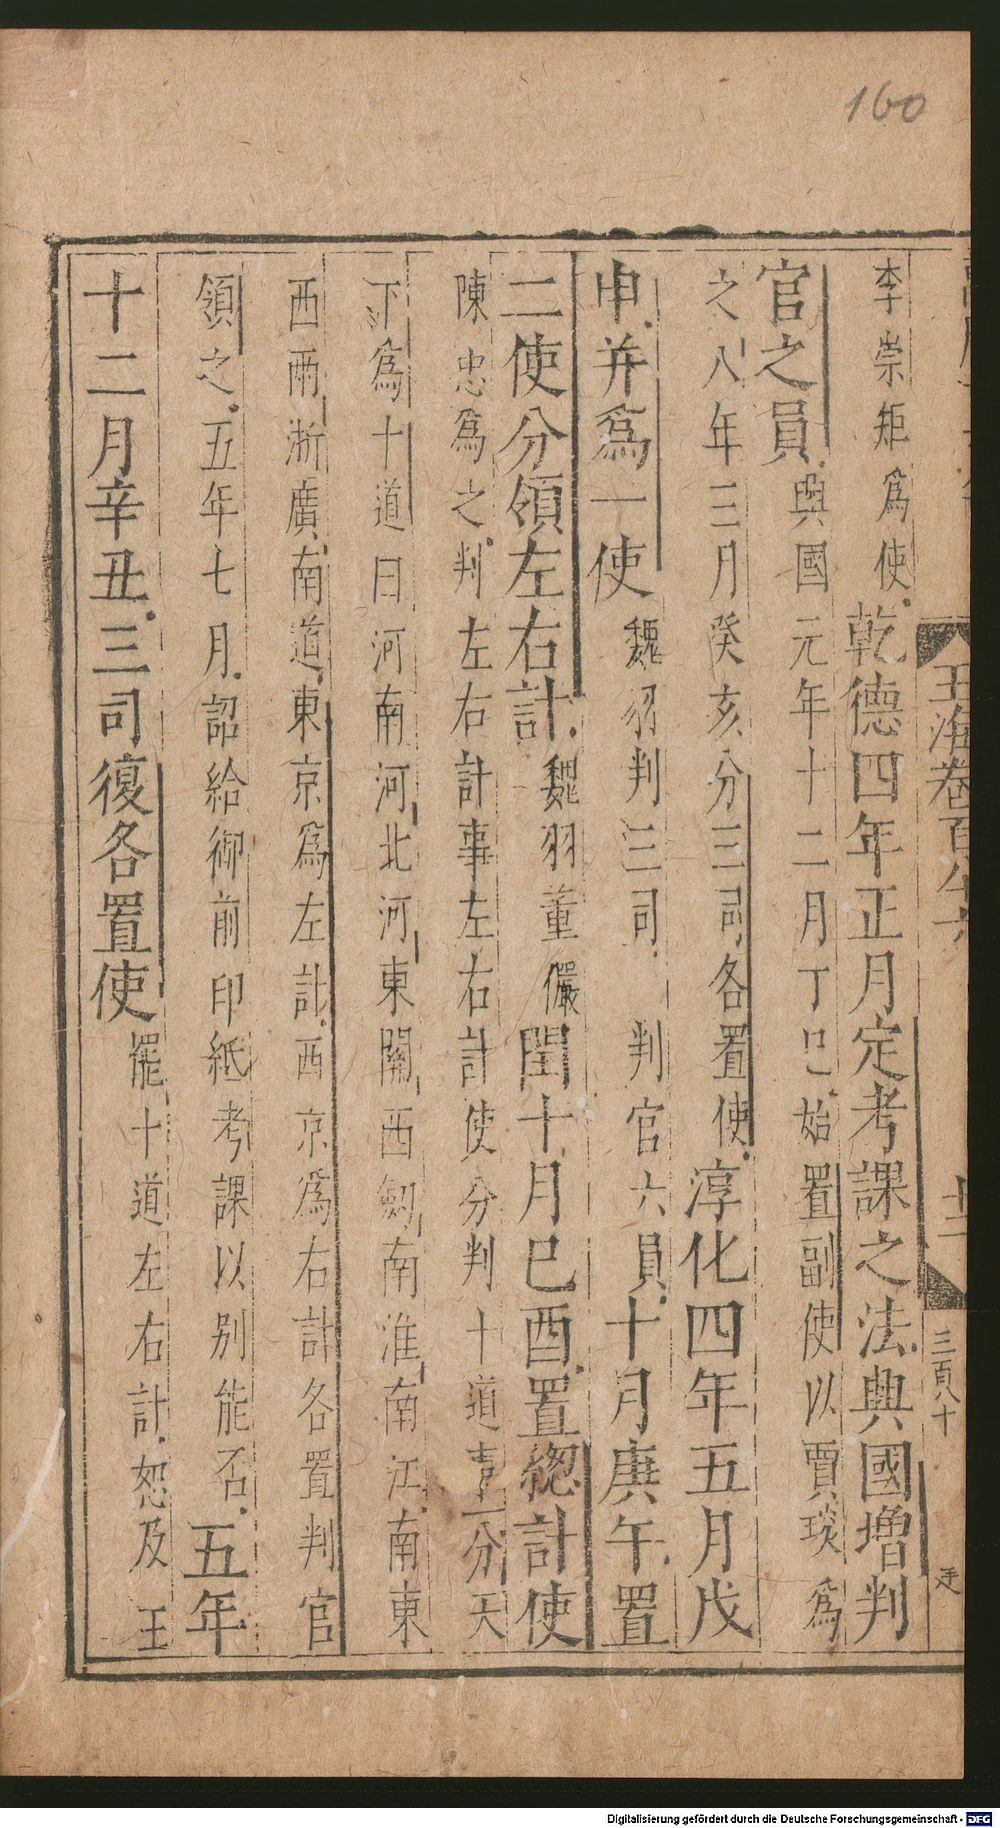 160
玉海卷百八十六
三百八十
李崇矩爲使乾德四年正月定考課之法興國增判
官之員興國元年十二月丁巳始置副使以賈琰爲
之八年三月癸亥分三司各置使淳化四年五月戊
申并爲一使魏羽判三司 判官六員十月庚午置
二使分領左右計魏羽董儼閏十月己酉置總計使
陳忠爲之判左右計事左右計使分判十道 分天
下爲十道曰河南河北河東關西劔南淮南江南東
西兩浙廣南道東京爲左計西京爲右計各置判官
領之五年七月詔給御前印紙考課以别能否五年
十二月辛丑三司復各置使罷十道左右計恕及王
Digitalisierung gefördert durch die Deutsche Forschungsgemeinschaft - DFG